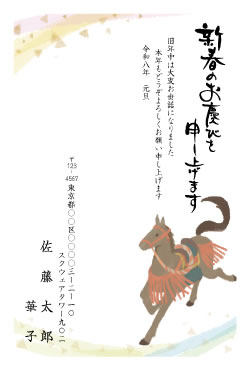 新春のお慶びを
申し上げます
旧年中は大変お世話になりました
本年もどうぞよろしくお願い申し上げます
令和八年　元旦
〒123-4567
東京都〇〇区〇〇〇〇三-二-一〇
スクウェアタワー九〇二
佐藤太郎
華子